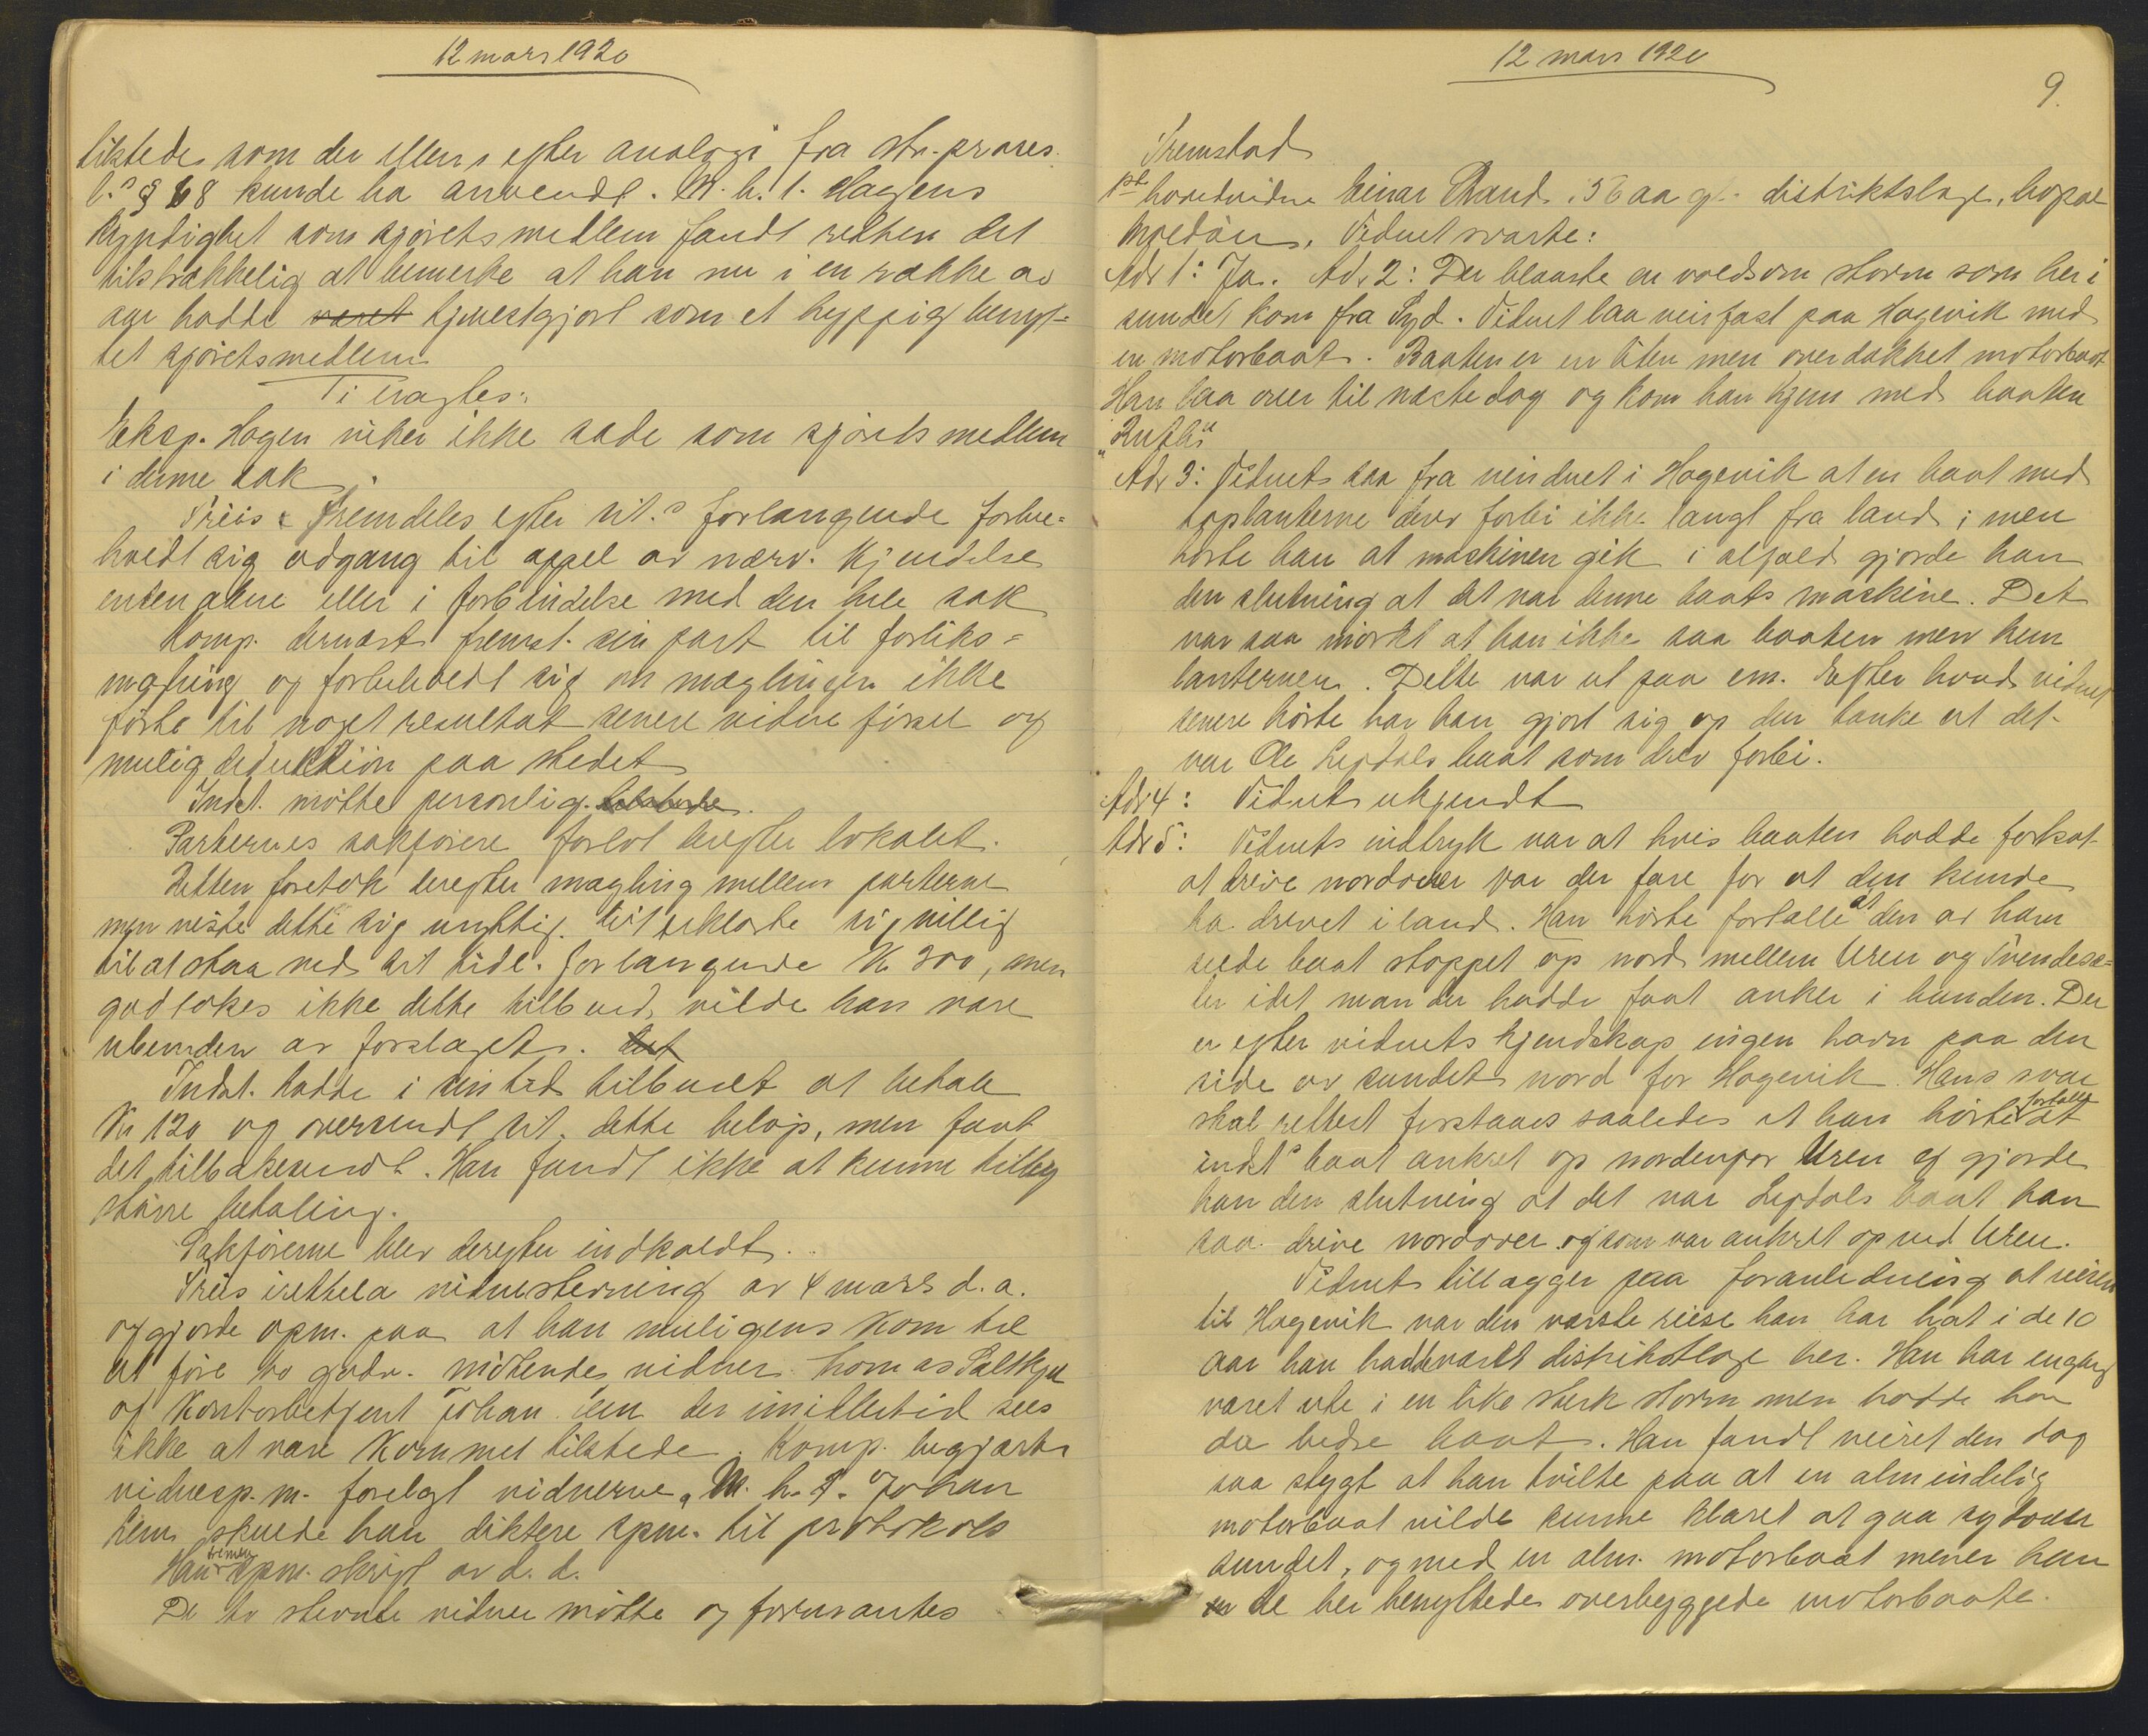 12 mars 1920
tilstede som der ellers efter analogi fra str.proces.
l.s § 68 kunde ha anvendt. M. h. t. Hagens
dygtighet som sjøretsmedlem fandt retten det
tilstrækkelig at bemerke at han nu i en række av
aar hadde varet tjenestgjort som et hyppig benyt=
tet sjøretsmedlem
Ti eragtes:
Eksp. Hagen viker ikke sæde som sjøretsmedlem
i denne sak.
Priis fremdeles efter cit.s forlangende forbe=
holdt sig adgang til appel av nærv. kjendelse
enten alene eller i forbindelse med den hele sak
Komp. dernæst fremst. sin part til forliks=
mægling og forbeholdt sig om mæglingen ikke
førte til noget resultat senere vidneførsel og
mulig deduktion paa stedet
Indst. møtte personlig. tilstede.
Parternes sakførere forlot derefter lokalet.
Retten foretok derefter mægling mellem parterne
men viste dette sig unyttig. Cit erklærte sig villig
til at slaa ned sit tidl. forlangende Kr 300, men
godtokes ikke dette tilbud, vilde han være
ubunden av forslaget.
Indst. hadde i sin tid tilbudt at betale
Kr 120 og oversendt cit. dette beløp, men faat
det tilbakesendt. Han fandt ikke at kunne tilby
større betaling.
Sakførerne blev derefter indkaldt.
Priis irettela vidnestevning av 4 mars d.a.
og gjorde opm. paa at han muligens kom til
at føre to godv. møtende vidner Thomas
og Kontorbetjent Johan Lem der imidlertid sees
ikke at være kommet tilstede. Komp. begjærte
vidnesp.m. forelagt vidnerne, M. h. t. Johan
Lem skulde han diktere spm. til protokols
Han fremla spm. skrift av d.d.
De to stevnte vidner møtte og formantes
12 mars 1920
9.
Fremstod
1ste hovedvidne Einar 56 aa gl. distriktslæge, bopæl
Moldøen. Vidnet svarte:
Adr 1: Ja. Adr 2: Der blaaste en voldsom storm som her i
sundet kom fra Syd. Vidnet laa veirfast paa Hagevik med
en motorbaat. Baaten er en liten men overdækket motorbaat
Han laa over til næste dag og kom han hjem med baaten
"Ruth"
Adr 3: Vidnets saa fra vinduet i Hagevik at en baat med
toplanterne drev forbi ikke langt fra land; men
hørte han at maskinen gik i alfald gjorde han
den slutning at det var denne baats maskine. Det
var saa mørkt at han ikke saa baaten men kun
lanternen. Dette var ut paa em. Efter hvad vidnet
senere hørte har han gjort sig op den tanke at det
var Ole Legdals baat som drev forbi.
Adr 4: Vidnet ukjendt
Adr 5: Vidnets indtryk var at hvis baaten hadde fortsat
at drive nordover var der fare for at den kunde
ha drevet i land. Han hørte fortalt at den av ham
seede baat stoppet op nord mellem Uren og
idet man der hadde faat anker i bunden. Der
er efter vidnets kjendskap ingen havn paa den
side av sundet nord for Hagevik. Hans svar
skal rettest forstaaes saaledes at han hørte fortalt at
indsts baat ankret op nordenfor Uren og gjorde
han den slutning at det var Legdals baat han
saa drive nordover og som var ankret op ved Uren.
Vidnet tillægger paa foranledning at reisen
til Hagevik var den værste reise han har hat i de 10
aar han hadde været distriktlæge her. Han har engang
været ute i en like sterk storm men hadde han
da bedre baat. Han fandt veiret den dag
saa stygt at han tvilte paa at en almindelig
motorbaat vilde kunne klaret at gaa sydover
sundet, og med en alm. motorbaat mener han
de her benyttede overbyggede motorbaate.